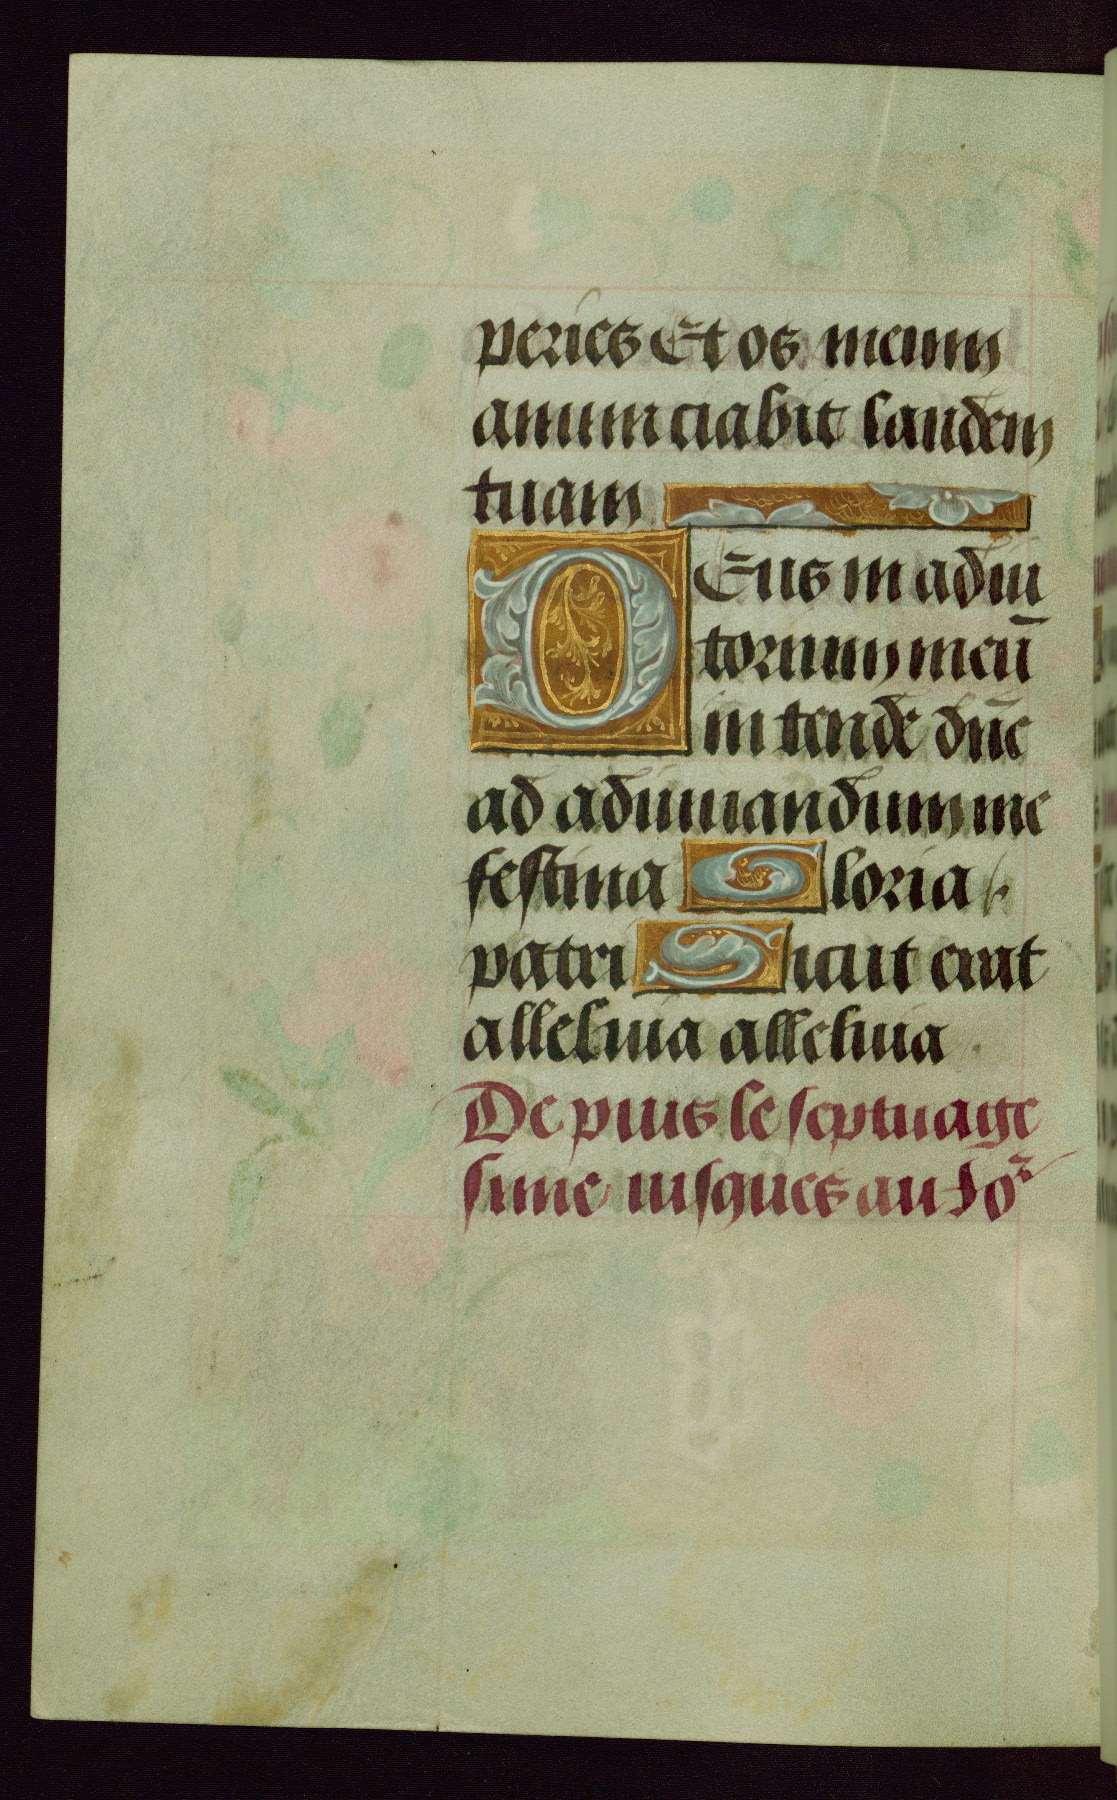 peries Et os meum
anunnciabit laudem
tuam
Deus in adiu
torium meū
in tende dn̄e
ad adiuuandum me
festina Gloria
patri Sicut erat
alleluia alleluia
Depuis le septuage
sime iusques au Jo